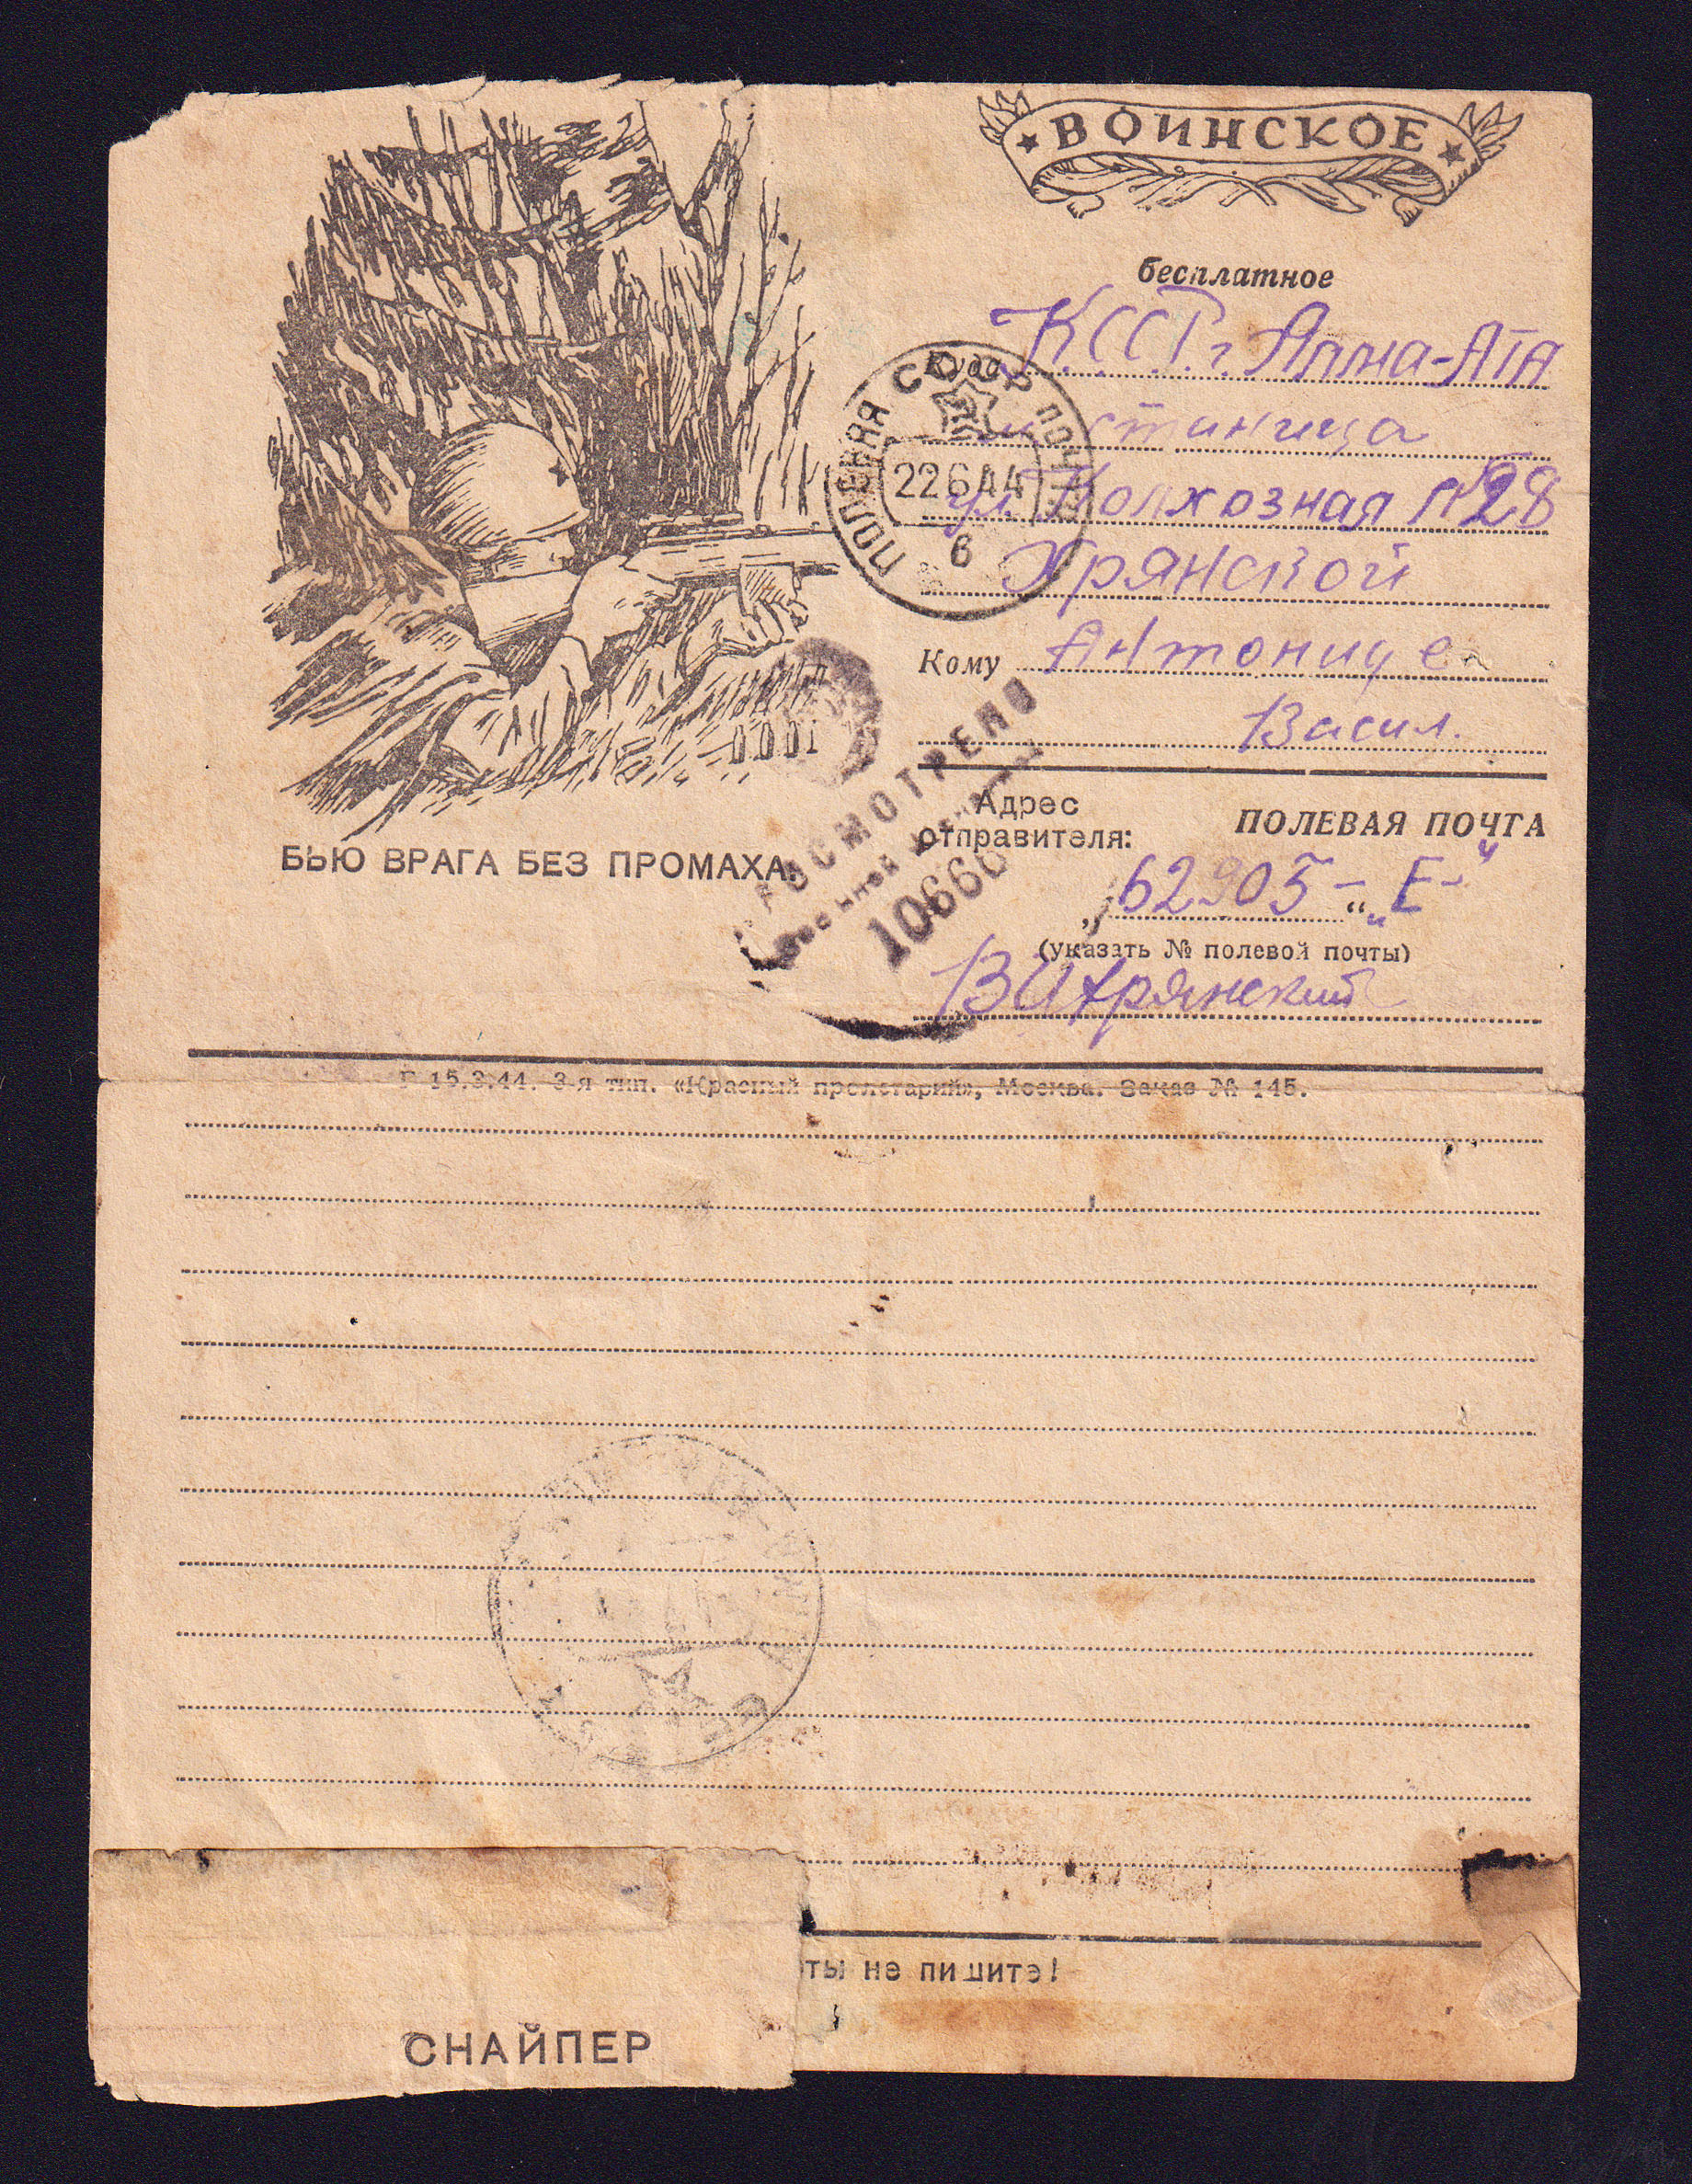 ВОИНСКОЕ
бесплатное
Куда К.С.С.Р. г. Алма-Ата
станица
ул. Колхозная №28
Хрянской
Кому Антониде
Васил.
ПОЛЕВАЯ ПОЧТА
22 6 44
6
БЬЮ ВРАГА БЕЗ ПРОМАХА.
ПРОСМОТРЕНО
Военной Цензурой
10666
Адрес
отправителя:
ПОЛЕВАЯ ПОЧТА
„62905-“ „Е“
(указать № полевой почты)
Г 15.3.44. 3-я тип. «Красный пролетарий», Москва. Заказ № 145.
не пишите!
СНАЙПЕР